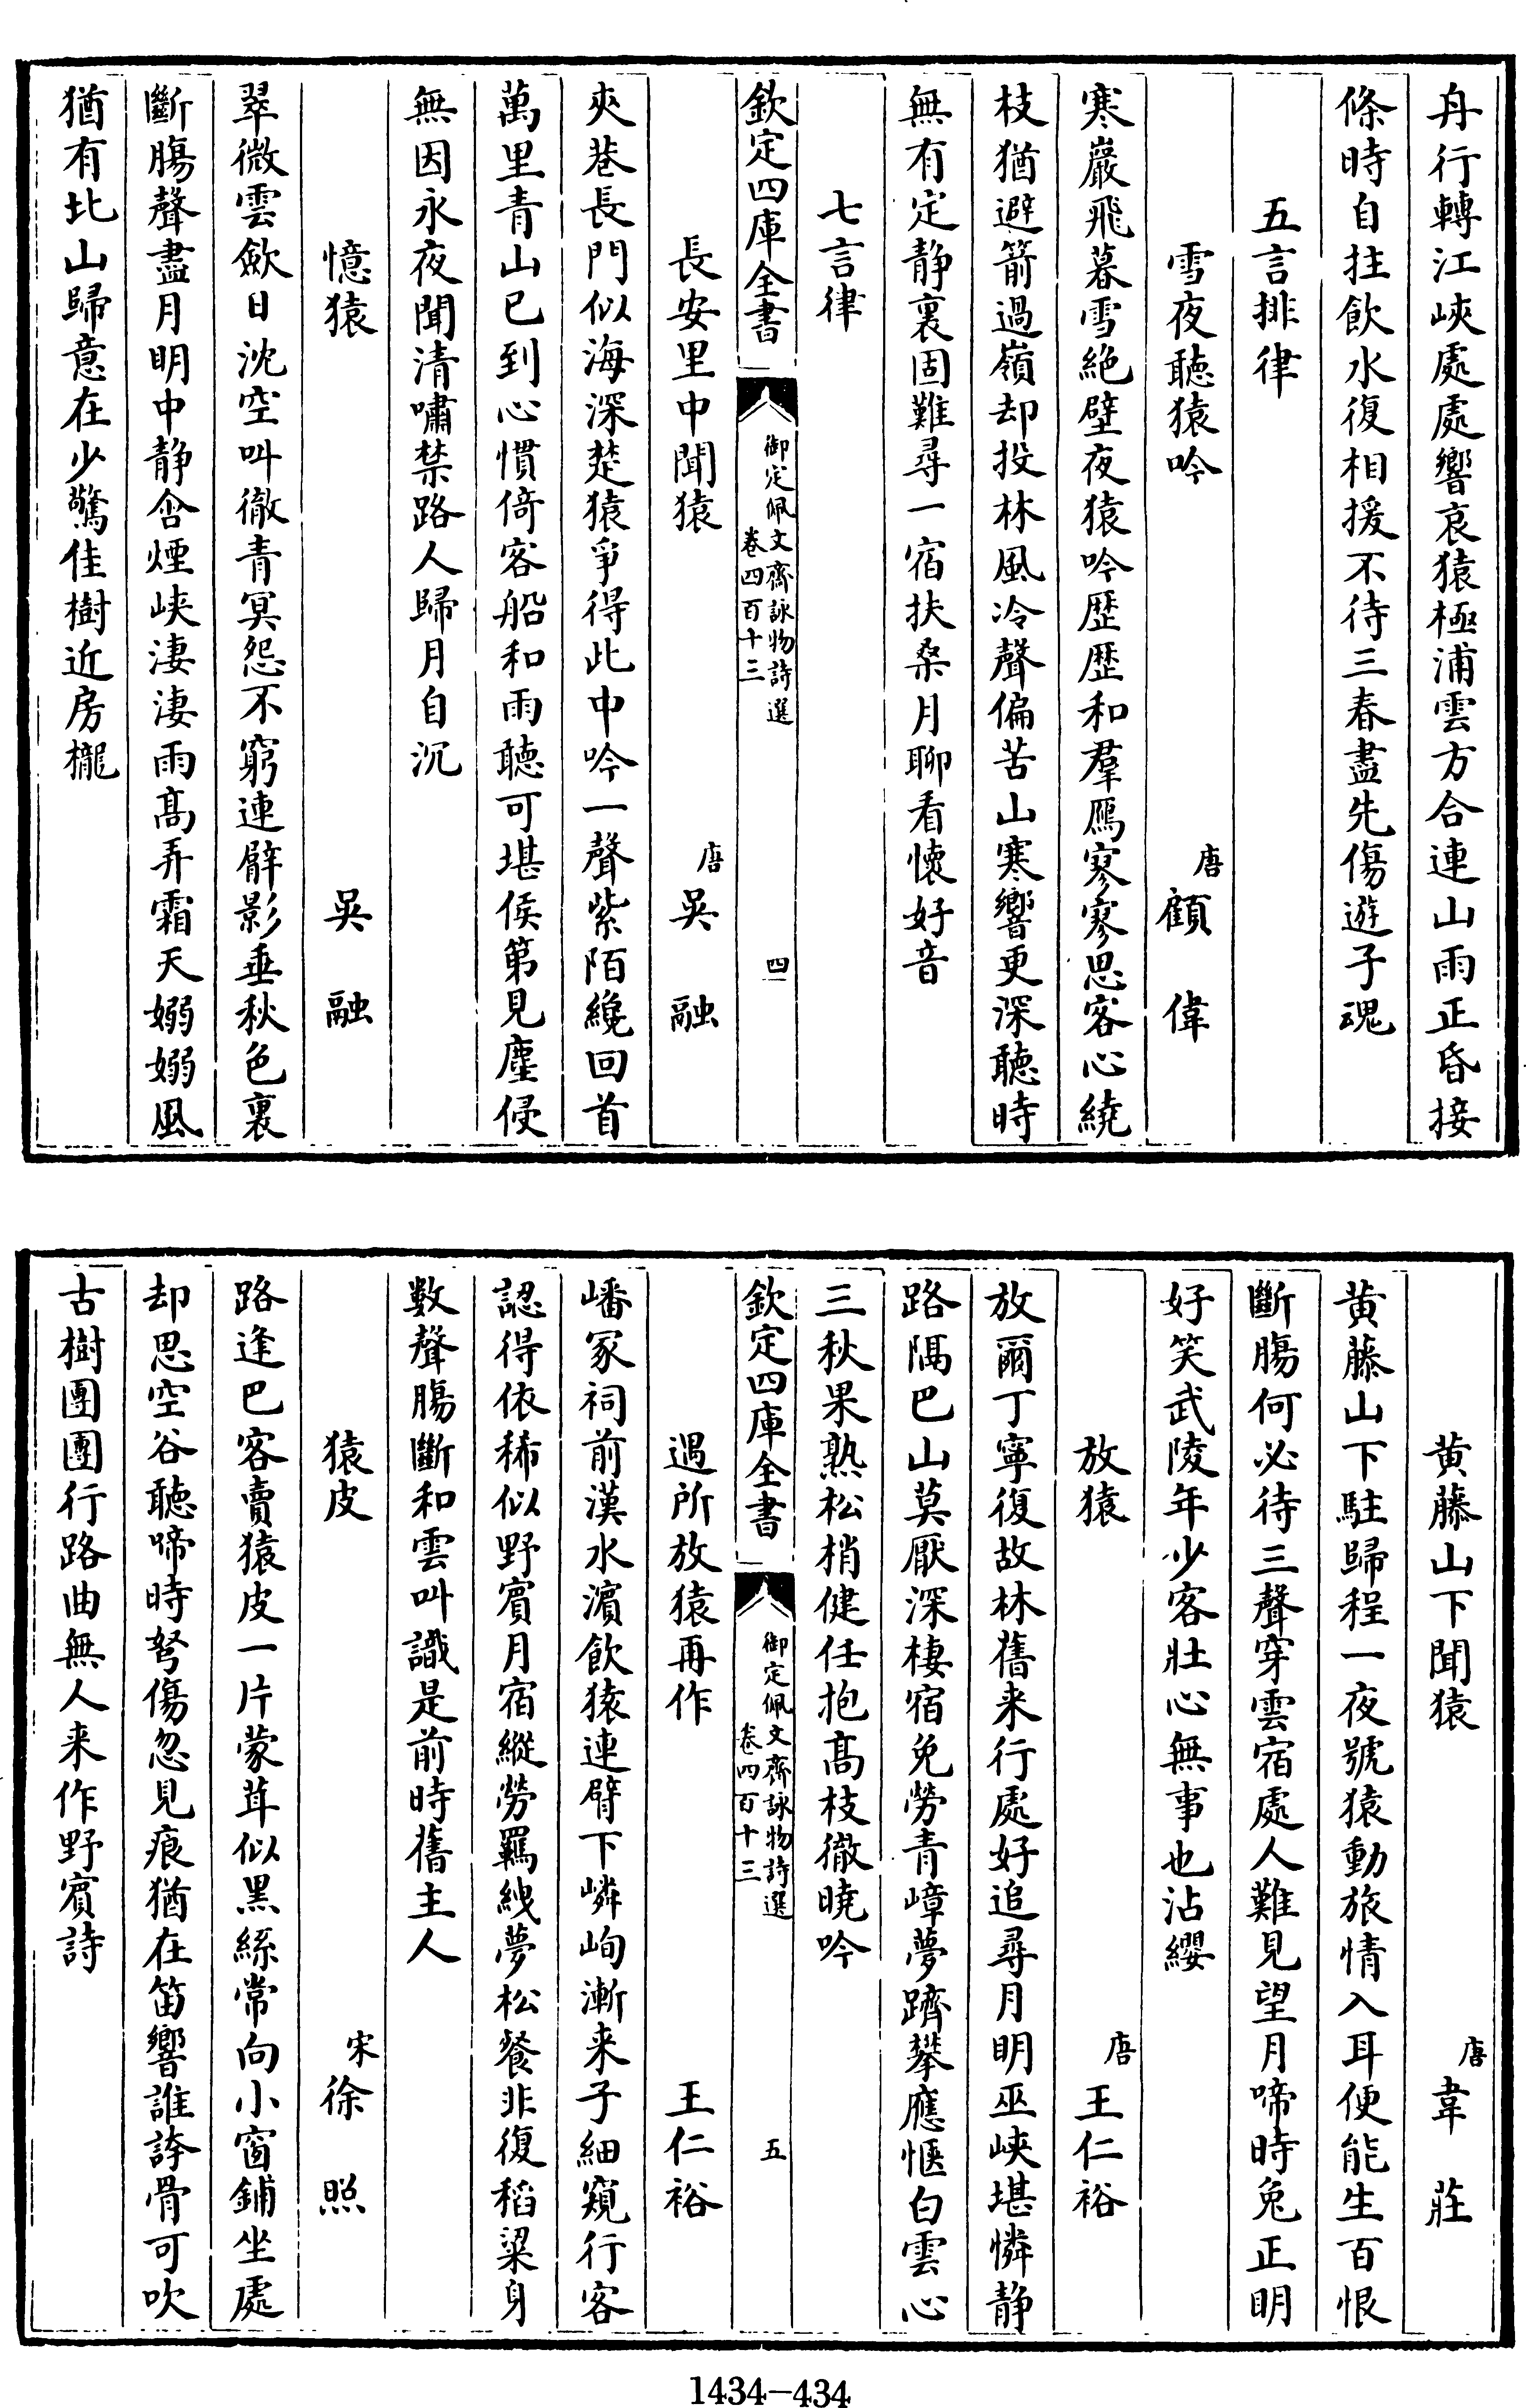 舟行轉江峽處處響哀猿極浦雲方合連山雨正昏接
條時自挂飲水復相援不待三春盡先傷遊子魂
五言排律
雪夜聽猿吟 唐 顧偉
寒巖飛暮雪絶壁夜猿吟歴歴和羣鴈寥寥思客心繞
枝猶避箭過嶺却投林風冷聲偏苦山寒響更深聽時
無有定静裏固難尋一宿扶桑月聊看懷好音
七言律
欽定四庫全書 御定佩文齋詠物詩選 卷四百十三 四
長安里中聞猿 唐 吳融
夾巷長門似海深楚猿爭得此中吟一聲紫陌纔回首
萬里青山已到心慣倚客船和雨聽可堪侯第見塵侵
無因永夜聞清嘯禁路人歸月自沉
憶猿 吳融
翠微雲歛日沈空叫徹青冥怨不窮連臂影垂秋色裏
斷腸聲盡月明中静含煙峽淒淒雨高弄霜天嫋嫋風
猶有北山歸意在少驚佳樹近房櫳
黄藤山下聞猿 唐 韋莊
黄藤山下駐歸程一夜號猿動旅情入耳便能生百恨
斷腸何必待三聲穿雲宿處人難見望月啼時兔正明
好笑武陵年少客壯心無事也沾纓
放猿 唐 王仁裕
放爾丁寧復故林舊来行處好追尋月明巫峽堪憐静
路隔巴山莫厭深棲宿免勞青嶂夢躋攀應愜白雲心
三秋果熟松梢健任抱高枝徹曉吟
欽定四庫全書 御定佩文齋詠物詩選 卷四百十三 五
遇所放猿再作 王仁裕
嶓冢祠前漢水濱飲猿連臂下嶙峋漸来子細窺行客
認得依稀似野賓月宿縱勞羈紲夢松餐非復稻粱身
數聲腸斷和雲叫識是前時舊主人
猿皮 宋 徐照
路逢巴客賣猿皮一片蒙茸似黑絲常向小窗鋪坐處
却思空谷聽啼時弩傷忽見痕猶在笛響誰誇骨可吹
古樹團團行路曲無人来作野賓詩
1434-434